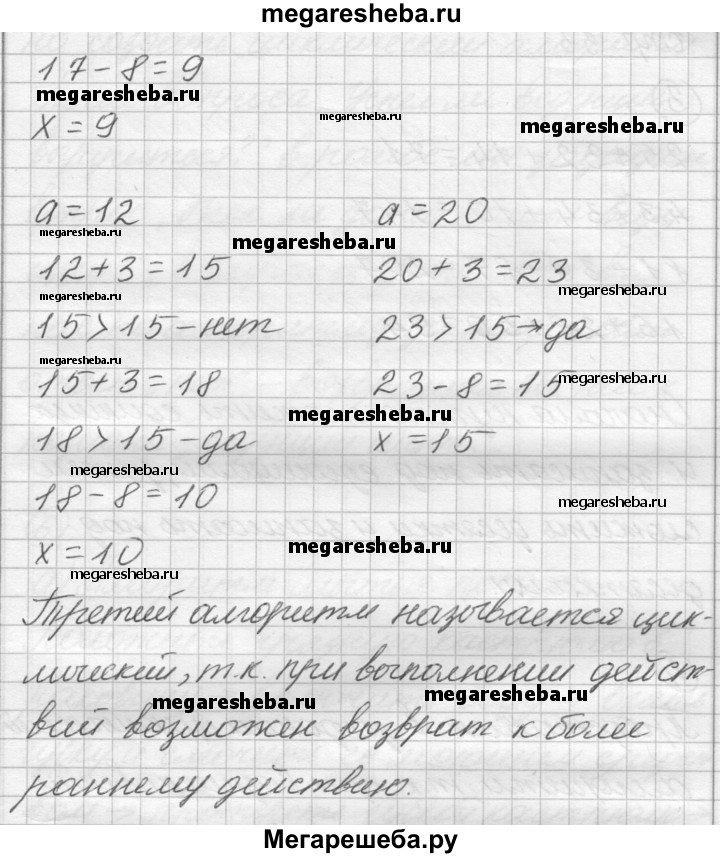 megaresheba.ru
17 - 8 = 9
megaresheba.ru
x = 9
megaresheba.ru
megaresheba.ru
a = 12
a = 20
megaresheba.ru
megaresheba.ru
12 + 3 = 15
20 + 3 = 23
megaresheba.ru
megaresheba.ru
15 > 15 - нет
23 > 15 → да
megaresheba.ru
15 + 3 = 18
23 - 8 = 15
megaresheba.ru
megaresheba.ru
18 > 15 - да
x = 15
megaresheba.ru
18 - 8 = 10
megaresheba.ru
x = 10
megaresheba.ru
megaresheba.ru
Третий алгоритм называется цик-
лический, т.к. при выполнении дейст-
megaresheba.ru
megaresheba.ru
вий возможен возврат к более
раннему действию.
Мегарешеба.ру